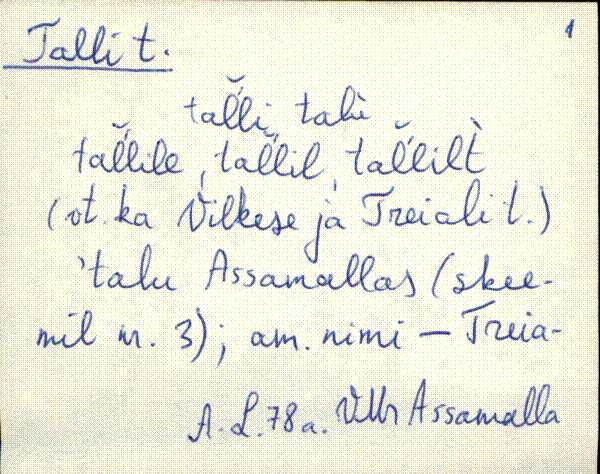 1
Talli t.
tal̆li, talù
tal̆lile, tal̆lil, tal̆lilt̀
(vt. ka Vilkese ja Treiali t.)
'talu Assamallas (skee-
mil nr. 3); am. nimi — Treia-
A. L. 78 a. VMr Assamalla